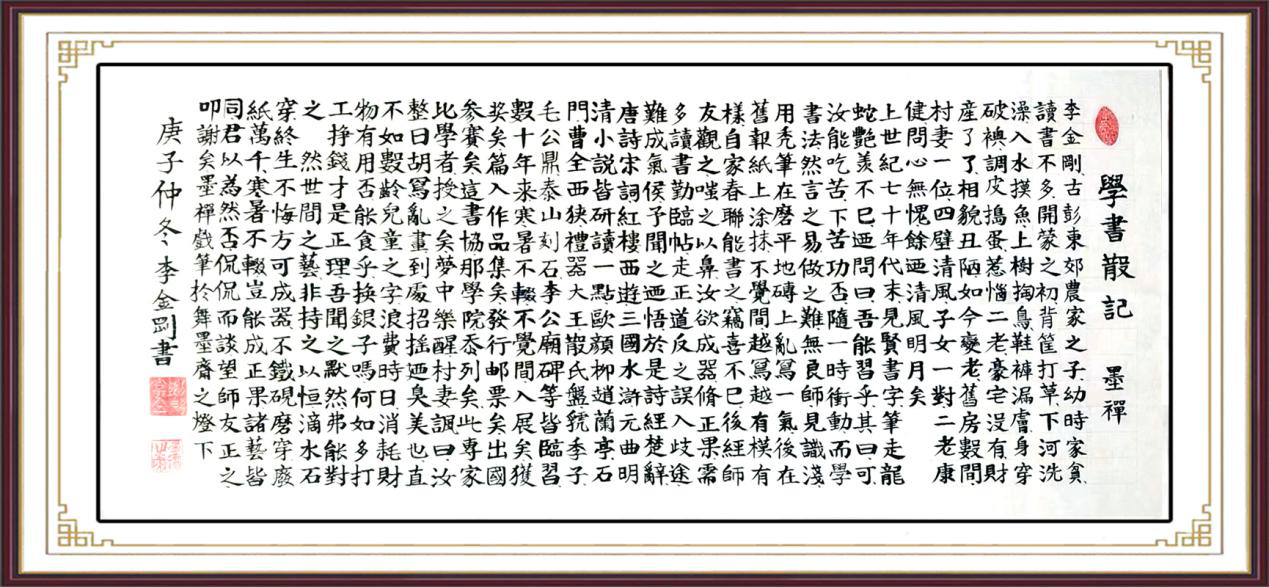 學書散記 墨禪
李金剛古彭東郊農家之子幼時家貧
讀書不多開蒙之初背筐打草下河洗
澡入水摸魚上樹掏鳥鞋褲漏膚身穿
破襖調皮搗蛋惹惱二老豪宅沒有財
産了了相貌丑陋如今變老舊房數間
村妻一位四壁清風子女一對二老康
健問心無愧餘迺清風明月矣
上世紀七十年代末見賢書字筆走龍
蛇艷羨不已迺問曰吾能習乎其曰可
汝能吃苦下苦功否隨一時衝動而學
書法然言之易做之難無良師見識淺
用秃筆在磨平地磚上亂寫一氣後在
舊報紙上涂抹不覺間越寫越有模有
樣自家春聯能書之竊喜不已後經師
友觀之嗤之以鼻汝欲成器修正果需
多讀書勤臨帖走正道反之誤入歧途
難成氣侯予聞之迺悟於是詩經楚辭
唐詩宋詞紅樓西遊三國水滸元曲明
清小説皆研讀一點歐顔柳趙蘭亭石
門曹全西狹禮器大王散氏盤虢季子
毛公鼎泰山刻石李公廟碑等皆臨習
數十年來寒暑不輟不覺間入展矣獲
奖矣篇入作品集矣發行邮票矣出國
參賽矣這書協那學院忝列矣此專家
比學者授之矣夢中樂醒村妻諷曰汝
整日胡寫亂畫到處招搖迺臭美也直
不如數齡兒童之字浪費時日消耗財
物有用否能食乎换銀子嗎何如多打
工挣錢才是正理吾聞之默然弗能對
之 然世間之藝非持之以恒滴水石
穿終生不悔方可成器不鐵硯磨穿廢
紙萬千寒暑不輟豈能成正果諸藝皆
同君以爲然否侃侃而談望師友正之
叩謝矣墨禪戲筆於舞墨齋之燈下
庚子仲冬李金剛書